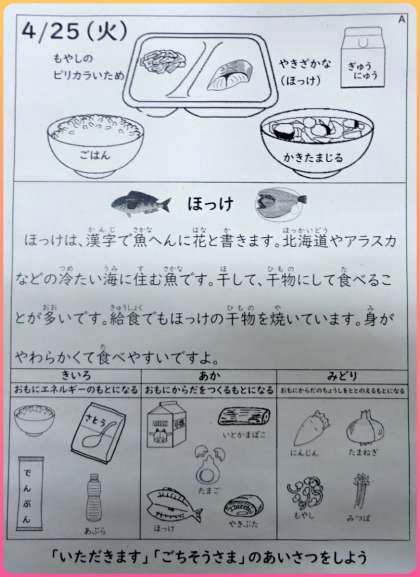 A
4/25(火)
もやしの
ピリカラいため
やきざかな
(ほっけ)
ぎゅう
にゅう
ごはん
かきたまじる
ほっけ
ほっけは、漢字で魚へんに花と書きます。北海道やアラスカ
などの冷たい海に住む魚です。干して、干物にして食べるこ
とが多いです。給食でもほっけの干物を焼いています。身が
やわらかくて食べやすいですよ。
きいろ
おもにエネルギーのもとになる
さとう
でんぷん
あぶら
あか
おもにからだをつくるもとになる
いとかまぼこ
たまご
ほっけ
やきぶた
みどり
おもにからだのちょうしをととのえるもとになる
にんじん
たまねぎ
もやし
みつば
「いただきます」「ごちそうさま」のあいさつをしよう